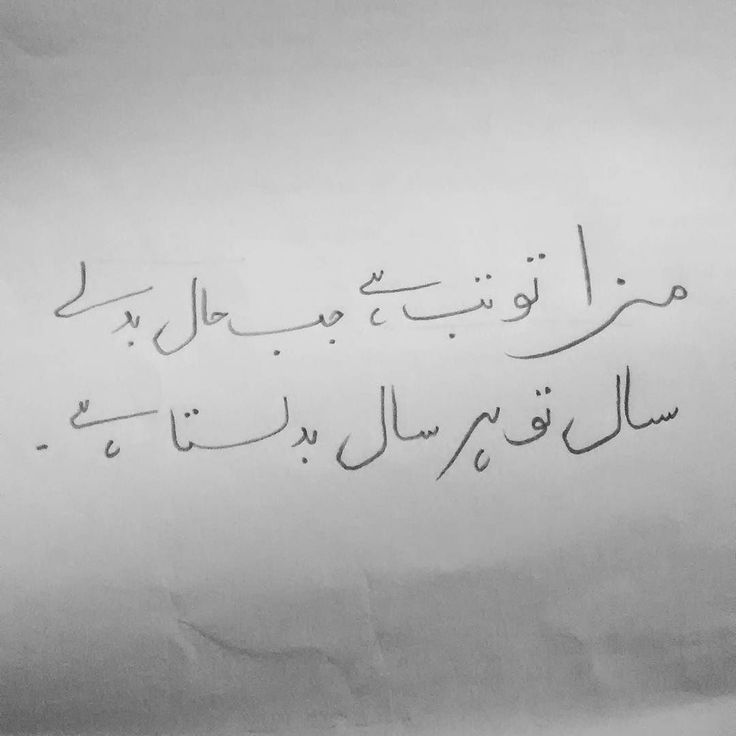 مزا تو تب ہے جب حال بدلے
سال تو ہر سال بدلتا ہے۔